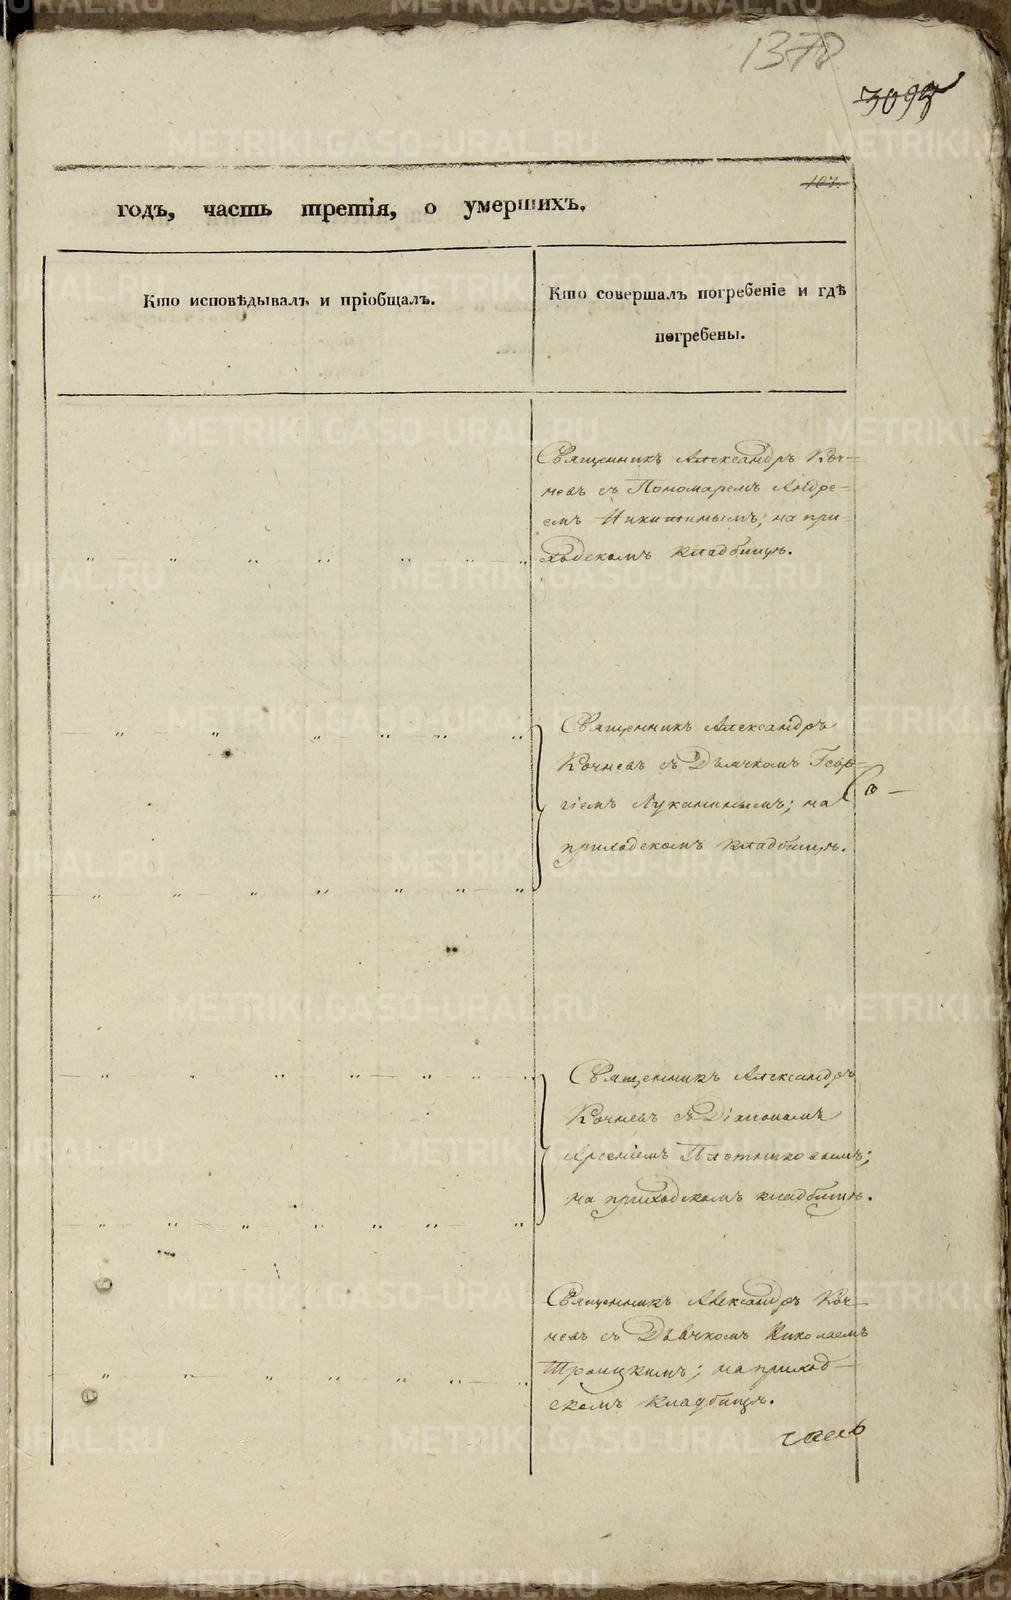 1378
3097
107.
годъ, часть третія, о умершихъ.
Кто исповѣдывалъ и пріобщалъ.
Кто совершалъ погребеніе и гдѣ
погребены.
Священникъ Александръ Коч=
невъ съ Пономаремъ Андре=
емъ Никитинымъ; на при=
ходскомъ кладбищѣ.
Священникъ Александръ
Кочневъ съ Дьячкомъ Геор=
гіемъ Луканинымъ; на
приходскомъ кладбищѣ.
Священникъ Александръ
Кочневъ съ Діакономъ
Арсеніемъ Плотниковымъ;
на приходскомъ кладбищѣ.
Священникъ Александръ Коч-
невъ съ Дьячкомъ Николаемъ
Троицкимъ; на приход-
скомъ кладбищѣ.
METRIKI.GASO-URAL.RU